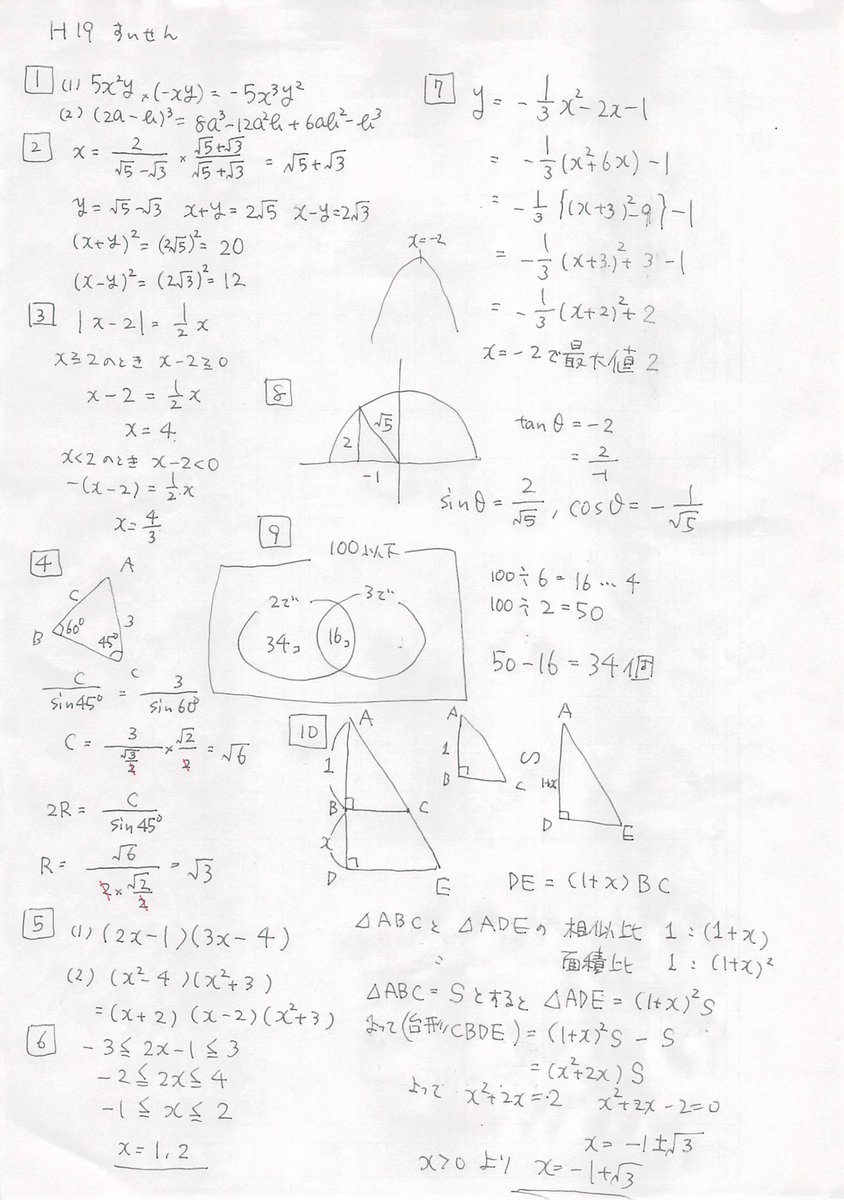 H19 すいせん
1 (1) 5x²y × (-xy) = -5x³y²
(2) (2a-b)³ = 8a³-12a²b+6ab²-b³
2 x = 2/(√5-√3) × (√5+√3)/(√5+√3) = √5+√3
y = √5-√3 x+y = 2√5 x-y = 2√3
(x+y)² = (2√5)² = 20
(x-y)² = (2√3)² = 12
3 |x-2| = 1/2 x
x≧2のとき x-2≧0
x-2 = 1/2 x
x = 4
x<2のとき x-2<0
-(x-2) = 1/2 x
x = 4/3
4
A
C
B 60° 45° 3
C
C/sin45° = 3/sin60°
C = 3/(√3/2) × √2/2 = √6
2R = C/sin45°
R = √6/(2×√2/2) = √3
5 (1) (2x-1)(3x-4)
(2) (x²-4)(x²+3)
= (x+2)(x-2)(x²+3)
6 -3≦2x-1≦3
-2≦2x≦4
-1≦x≦2
x = 1, 2
7 y = -1/3 x²-2x-1
= -1/3(x²+6x)-1
= -1/3{(x+3)²-9}-1
= -1/3(x+3)²+3-1
= -1/3(x+2)²+2
x=-2で最大値2
x=-2
8
2 √5
-1
tanθ = -2
= 2/-1
sinθ = 2/√5, cosθ = -1/√5
9
100以下
2で 3で
34コ 16コ
100÷6 = 16…4
100÷2 = 50
50-16 = 34個
10
A
1
B C
x
D E
A
1
B C
∽
A
1+x
D E
DE = (1+x)BC
△ABCと△ADEの 相似比 1:(1+x)
〃 面積比 1:(1+x)²
△ABC = Sとすると △ADE = (1+x)²S
よって(台形CBDE) = (1+x)²S - S
= (x²+2x)S
よって x²+2x = 2 x²+2x-2=0
x = -1±√3
x>0 より x = -1+√3